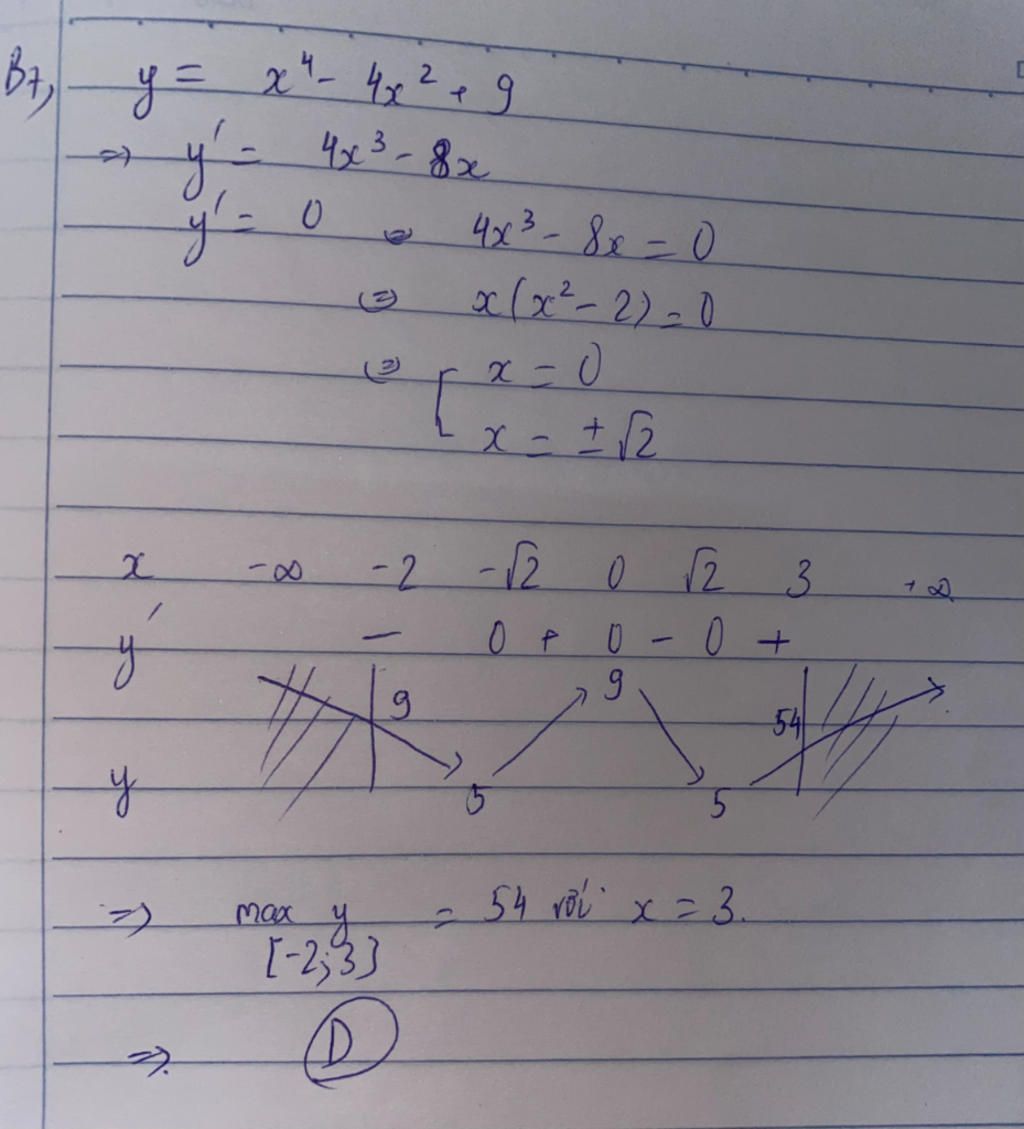 B7,
y = x⁴ - 4x² + 9
=> y' = 4x³ - 8x
y' = 0 <=> 4x³ - 8x = 0
<=> x(x² - 2) = 0
<=> [ x = 0
x = ±√2
x -∞ -2 -√2 0 √2 3 +∞
y' - 0 + 0 - 0 +
9 9 54
y 5 5
=> max y = 54 với x = 3.
[-2;3]
=> D